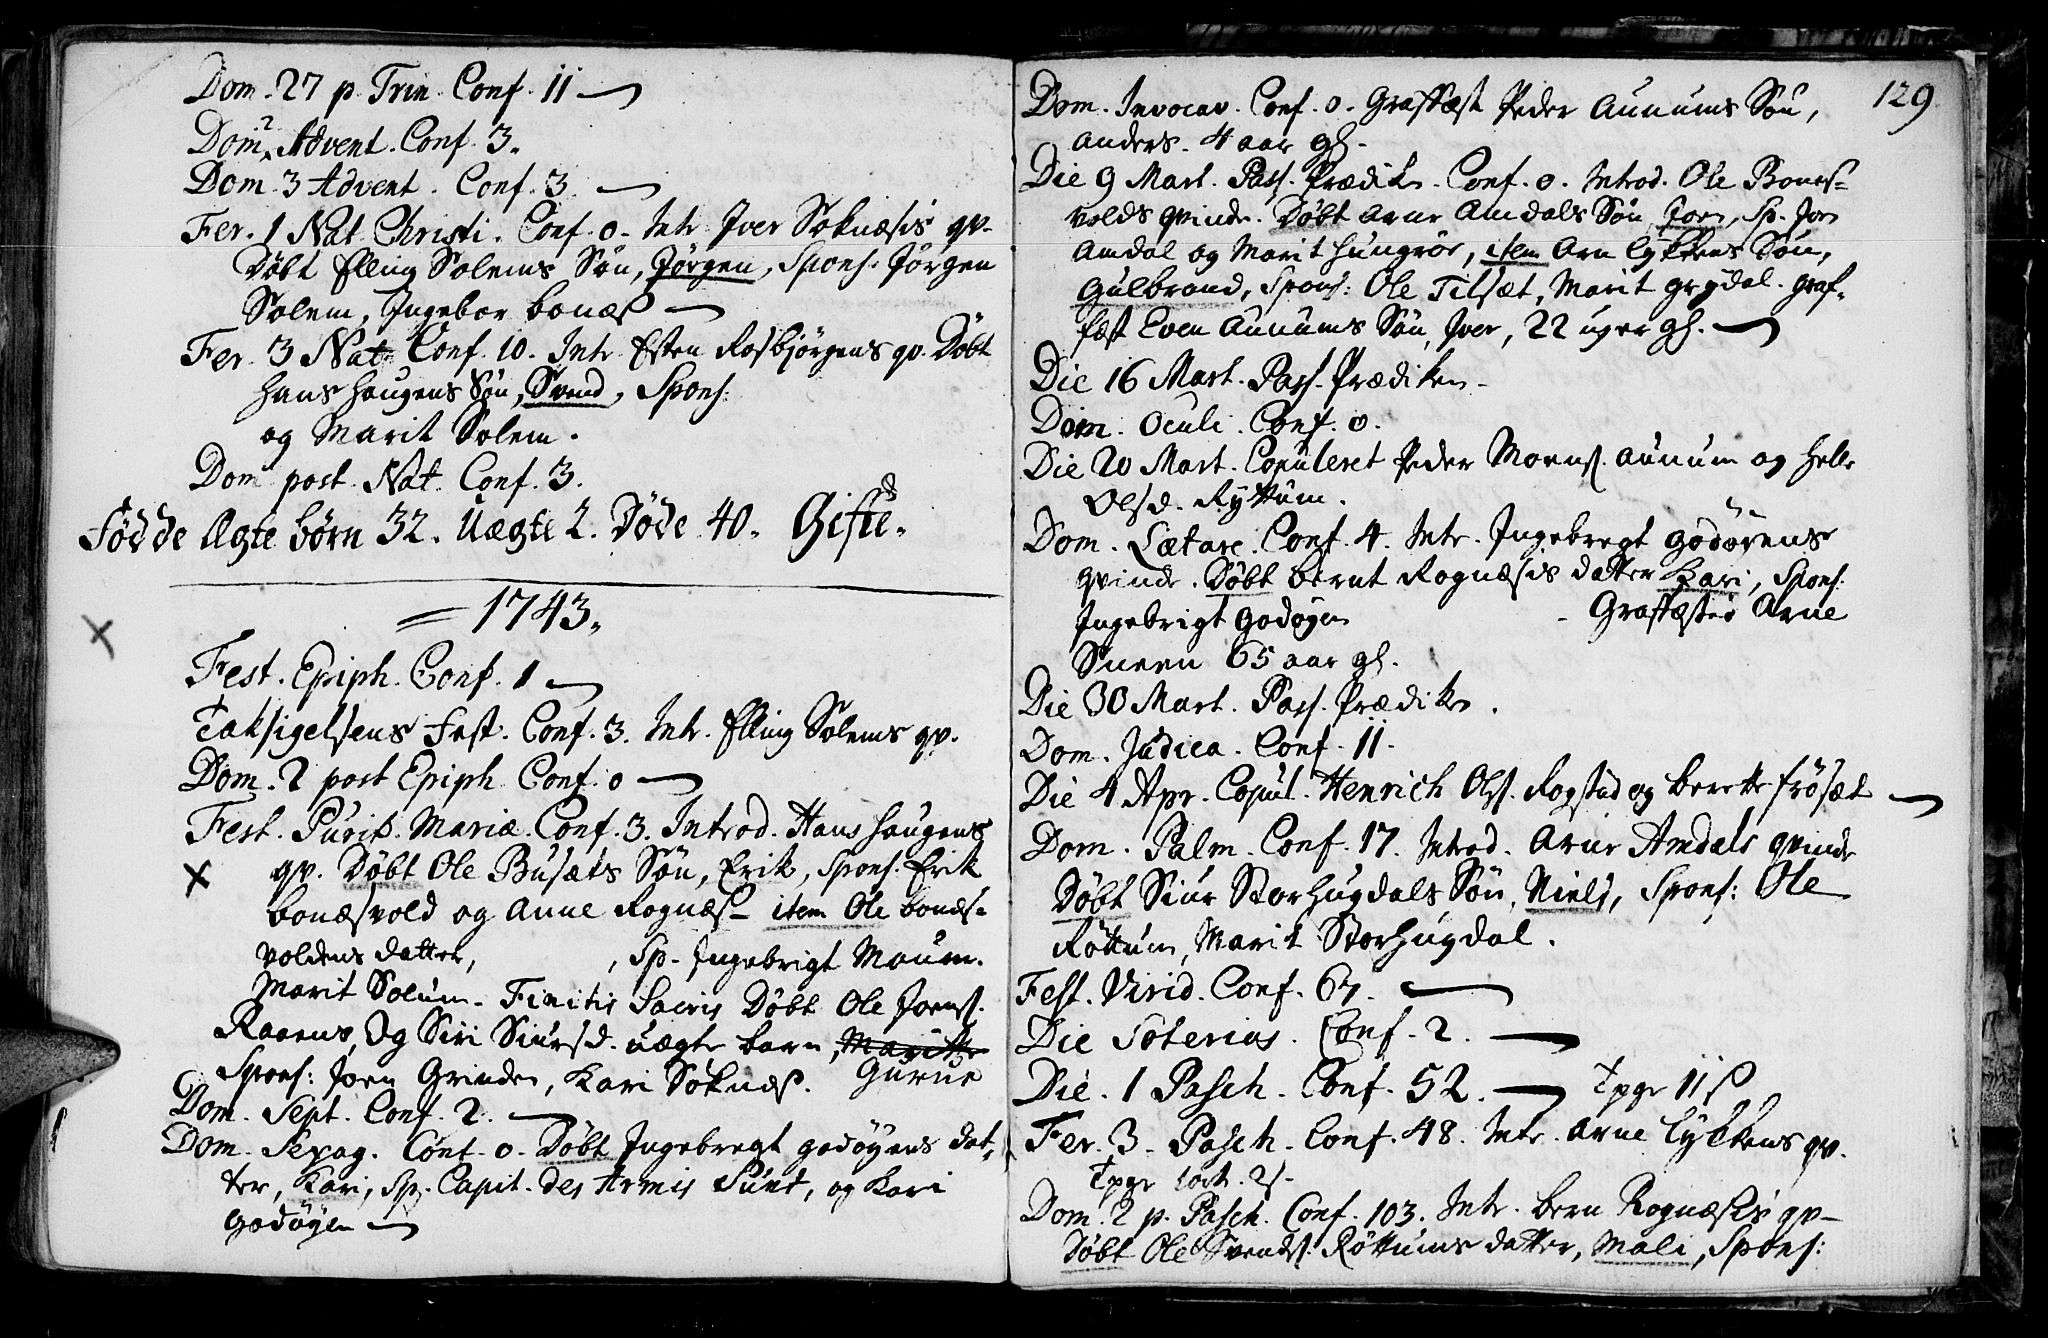 Dom. 27 p. Trin. Conf. 11
Dom. 2 Advent. Conf. 3.
Dom. 3 Advent. Conf. 3.
Fer. 1 Nat. Christi. Conf. 0. Intr. Iver Soknæsis qv.
Døbt Elling Solems Søn, Jørgen, Spons. Jørgen
Solem, Ingebor bonæs
Fer. 3 Nat. Conf. 10. Intr. Esten Rosbjørgens qv. Døbt
Hans Haugens Søn, Svend, Spons:
og Marit Solem.
Dom post. Nat. Conf. 3.
Fødde Ægte børn 32. Uægte 2. Døde 40. Gifte.
1743.
Fest. Epiph. Conf. 1
Taksigelsens Fest. Conf. 3. Intr. Elling Solems qv.
Dom. 2 post Epiph. Conf. 0
Fest. Purif. Mariæ. Conf. 3. Introd. Hans Haugens
qv. Døbt Ole Busæts Søn, Erik, Spons. Erik
bonæsvold og Anne Rognæs item Ole bonæs-
voldens datter, , Sp. Ingebrigt Mouum.
Marit Solum. Finitis Sacris Døbt Ole Joens.
Raaens, Og Siri Siursd. uægte barn, Maritte
Spons: Joen Grinden, Kari Soknæs. Gurue
Dom. Sept. Conf. 2.
Dom. Sexag. Conf. 0. Døbt Ingebregt godøyens dat-
ter, Kari, Sp. Capit. des Armis Sunt, og Kari
Godøyen
129
Dom. Invocav. Conf. 0. Graffæst Peder Aunums Søn,
Anders. 4 aar gl.
Die 9 Mart. Pass. Prædiken. Conf. 0. Introd. Ole Bones-
volds qvinde. Døbt Arne Amdals Søn, Joen, Sp. Joen
Amdal og Marit Hungrøe, item Arn Lykkens Søn,
Gulbrand, Spons: Ole Tilsæt, Marit grydal. Graf-
fæst Even Aunums Søn, Iver, 22 uger gl.
Die 16 Mart. Pass. Prædiken
Dom. Oculi. Conf. 0.
Die 20 Mart. Copuleret Peder Moens. Aunum og Helle
Olsd. Ryttum.
Dom. Lætare. Conf. 4. Intr. Ingebregt Godøyens
qvinde. Døbt bernt Rognæsis datter Kari, Spons:
Ingebrigt Godøyen Graffæsted Arne
Sneen 65 aar gl.
Die 30 Mart. Pass. Prædiken.
Dom. Judica. Conf. 11.
Die 4 Apr. Copul. Henrich Ols. Rogstad og Berette Frøsæt
Dom. Palm. Conf. 17. Introd. Arne Amdals qvinde
Døbt Siur Storhugdals Søn, Niels, Spons: Ole
Røttum, Marit Storhugdal.
Fest. Virid. Conf. 67.
Die Soterias. Conf. 2.
Die. 1 Pasch. Conf. 52. Tpgr 11 s
Fer. 3. Pasch. Conf. 48. Intr. Arne Lykkens qv.
Tpgr 2 s.
Dom. 2 p. Pasch. Conf. 103. Intr. bern Rognæsis qv
Døbt Ole Svends. Røttums datter, Mali, Spons: